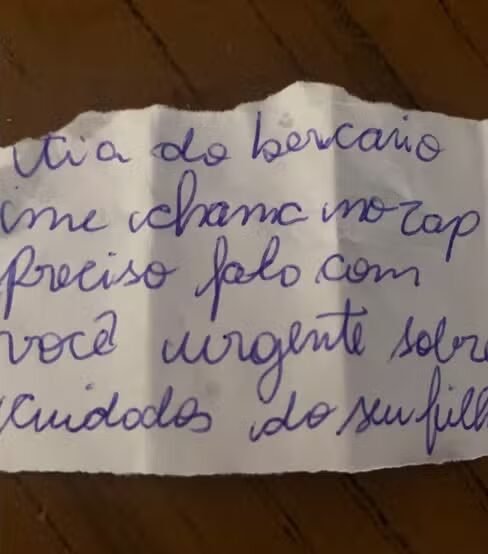 tia do bercario
me chama no zap
Preciso falo com
você urgente sobre
cuidados do seu filh